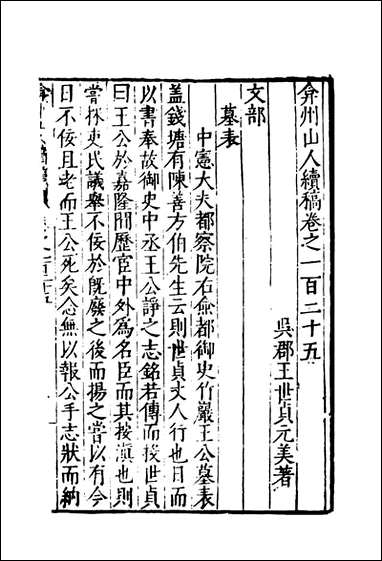 弇州山人續稿卷之一百二十五
吳郡王世貞元美著
文部
墓表
中憲大夫都察院右僉都御史竹巖王公墓表
蓋錢塘有陳善方伯先生云則世貞丈人行也日而
以書奉故御史中丞王公諍之志銘若傳而授世貞
曰王公於嘉隆間歷官中外為名臣而其按滇也則
嘗採吏氏議舉不佞於既廢之後而揚之嘗以有今
日不佞且老而王公死矣念無以報公手志狀而納